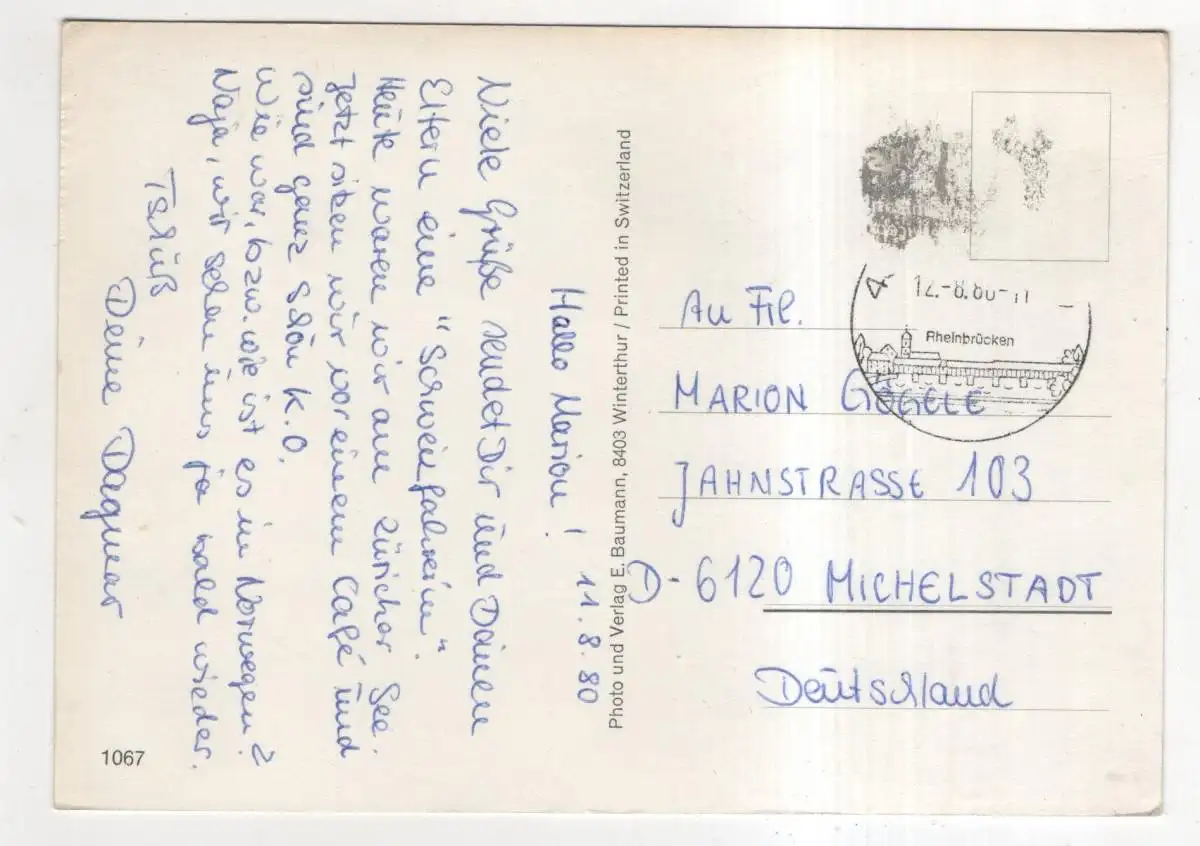 11.8.80
Hallo Marion!
Viele Grüße sendet Dir und Deinen
Eltern eine "Schweinfahrerin".
Heute waren wir am Züricher See.
Jetzt sitzen wir vor einem Café und
sind ganz schön K.O.
Wie war, bzw. wie ist es in Norwegen?
Naja, wir sehen uns ja bald wieder.
Tschüß
Deine Dagmar
1067
Photo und Verlag E. Baumann, 8403 Winterthur / Printed in Switzerland
12.-8.80-11
Rheinbrücken
An Frl.
MARION GÖGELE
JAHNSTRASSE 103
D-6120 MICHELSTADT
Deutschland